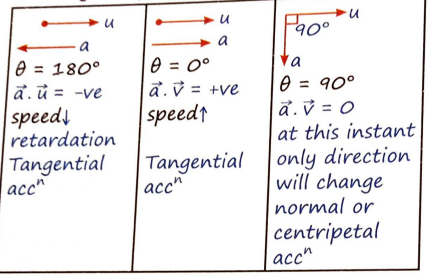 u
a
θ = 180°
a⃗. u⃗ = -ve
speed↓
retardation
Tangential
accⁿ
u
a
θ = 0°
a⃗. v⃗ = +ve
speed↑
Tangential
accⁿ
u
90°
a
θ = 90°
a⃗. v⃗ = 0
at this instant
only direction
will change
normal or
centripetal
accⁿ